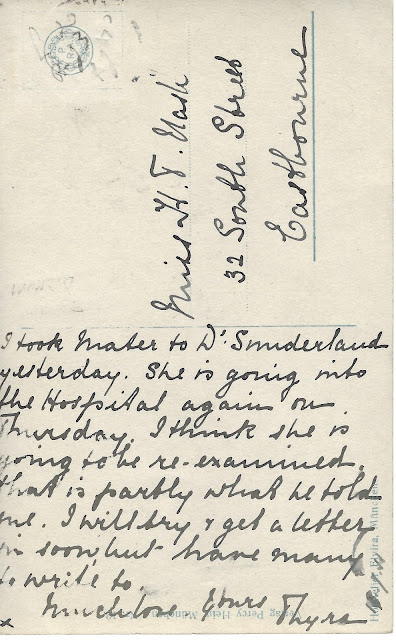 Miss H. T. Nash
32 South Street
Eastbourne
I took Mater to Dr Sunderland
yesterday. She is going into
the Hospital again on
Thursday. I think she is
going to be re-examined.
that is partly what he told
me. I will try & get a letter
in soon, but have many
to write to.
Much love Yours Thyra
x
Verlag Percy Hein, München
Hofatelier Elvira, München